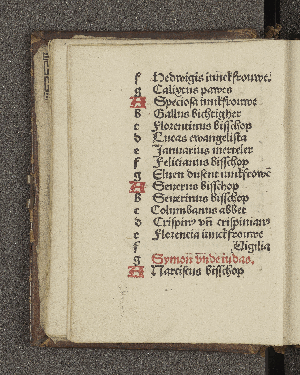 f Hedwigis iunckfrouwe.
g Calixtus pawes
A Speciosa iunkfrouwe
b Gallus bichtigher
c Florentinus bisschop
d Lucas ewangelista
e Januarius merteler
f Felicianus bisschop
g Eluen dusent iunkfrowē
A Seuerus bisschop
b Seuerinus bisschop
c Columbanus abbet
d Crispinꝰ vñ crispinianꝰ
e Florencia iunckfrouwe
f Vigilia
g Symon vnde iudas.
A Narcisus bisschop